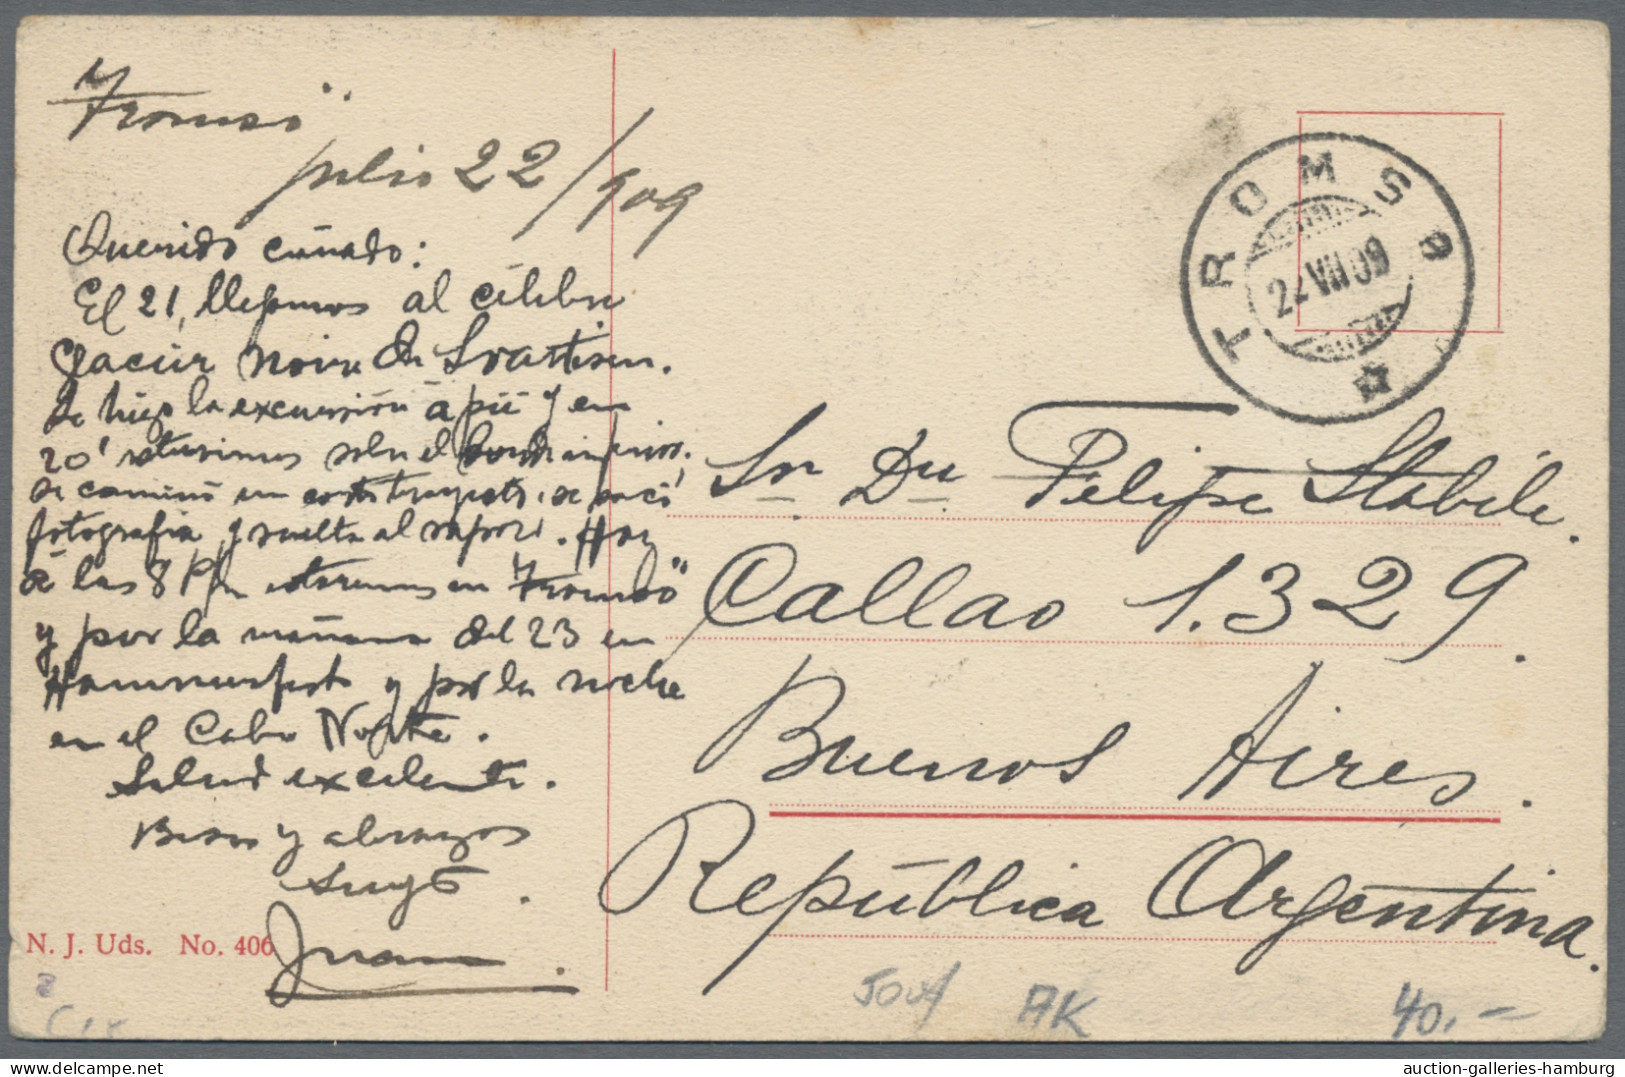 Tromsö
julio 22/909
Querido cuñado:
El 21, llegamos al célebre
Glacier noire de Svartisen.
Se hizo la excursión á pié y en
20' estuvimos sobre el borde inferior.
se caminó un                se sacó
fotografia y vuelta al vapor. Hoy
á las 8 P/m estaremos en Tromsö
y por la mañana del 23 en
Hammerfest y por la noche
en el Cabo Norte.
Salud excelente.
Besos y abrazos
Juan.
N. J. Uds. No. 406
TROMSØ
22 VII 09
Sr Dr Felipe Stabile.
Callao 1.329.
Buenos Aires.
República Argentina.
AK
40.-
auction-galleries-hamburg